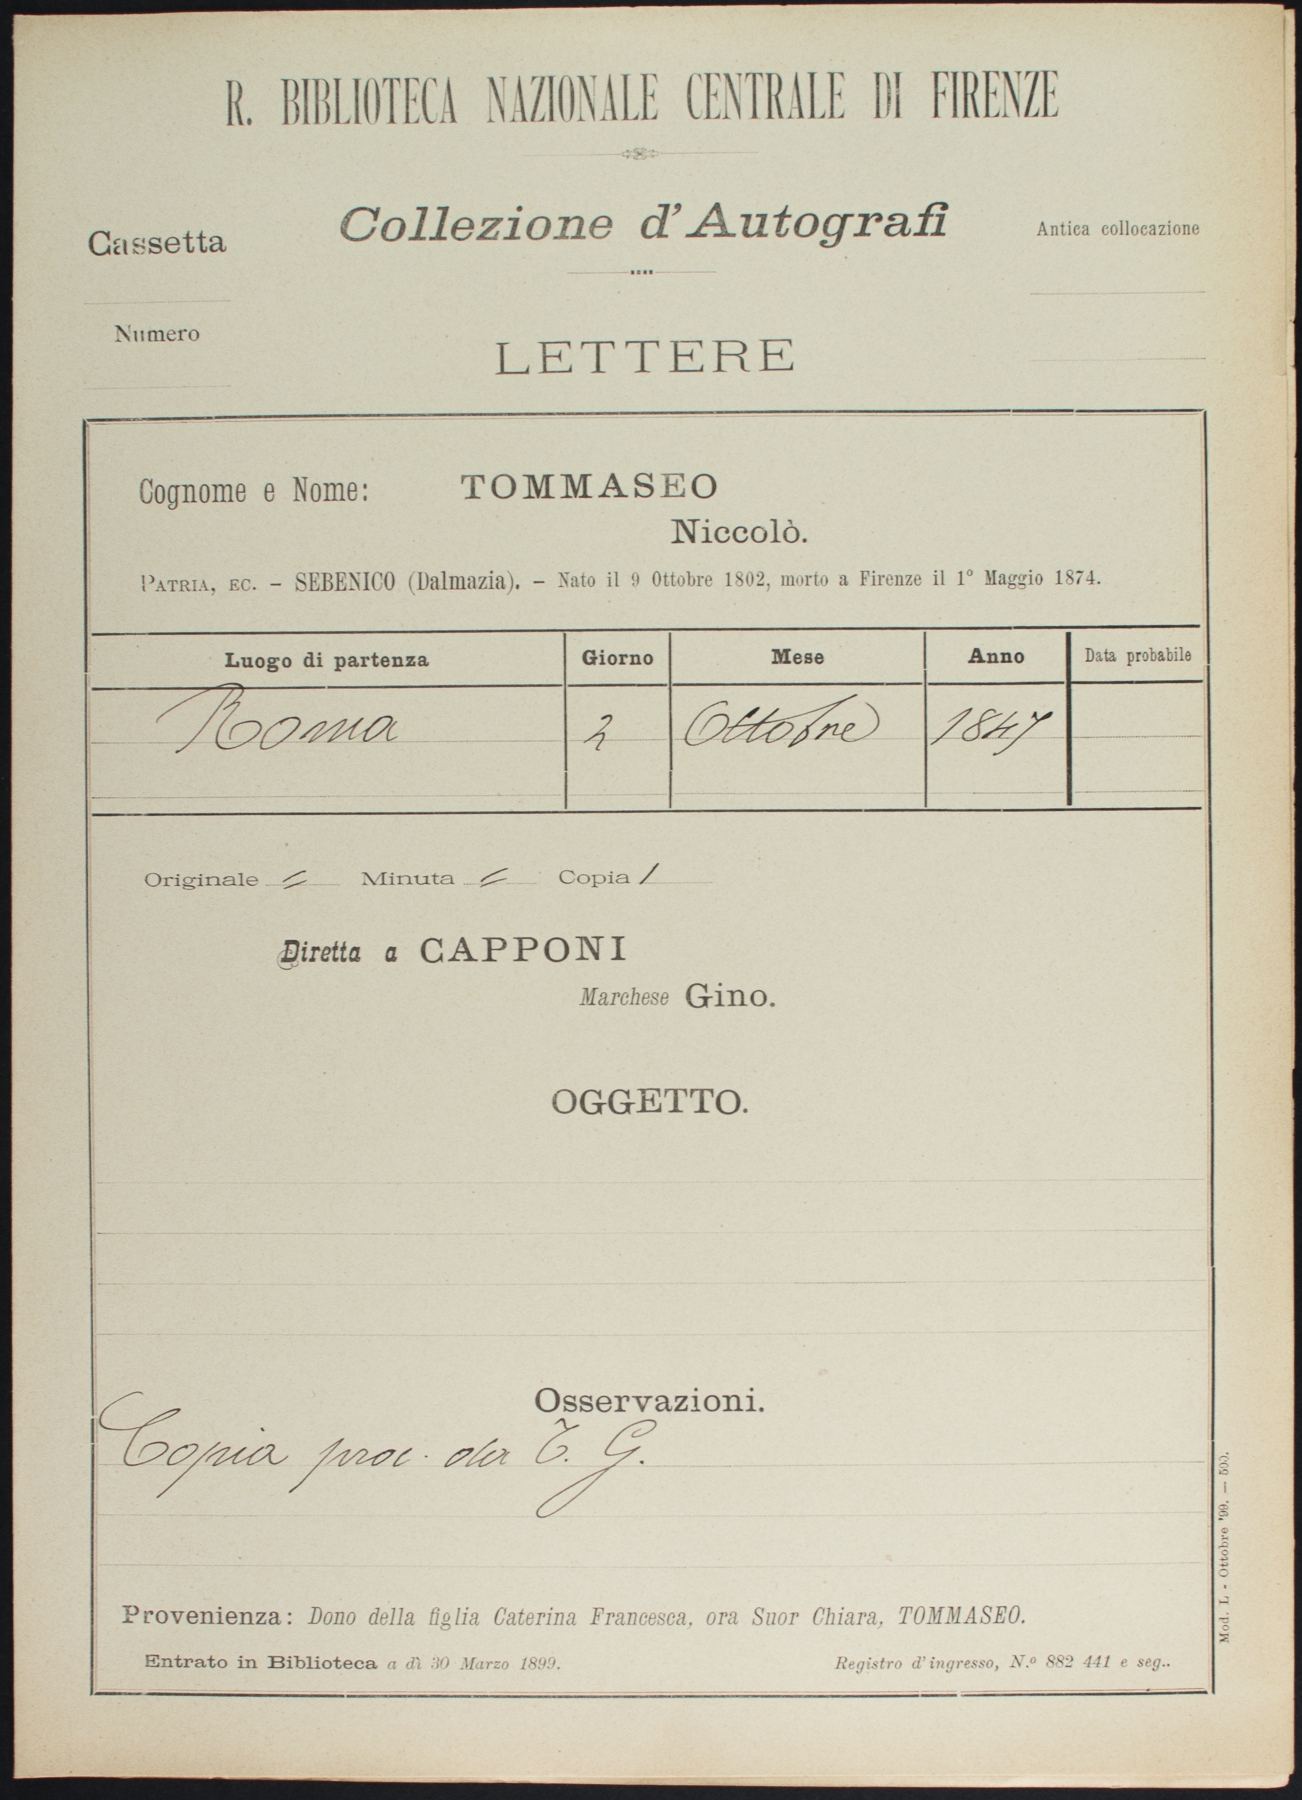 R. BIBLIOTECA NAZIONALE CENTRALE DI FIRENZE
Collezione d'Autografi
Cassetta
Antica collocazione
Numero
LETTERE
Cognome e Nome: TOMMASEO
Niccolò.
PATRIA, EC. – SEBENICO (Dalmazia). – Nato il 9 Ottobre 1802, morto a Firenze il 1° Maggio 1874.
Luogo di partenza Giorno Mese Anno Data probabile
Roma 2 Ottobre 1847
Originale = Minuta = Copia 1
Diretta a CAPPONI
Marchese Gino.
OGGETTO.
Osservazioni.
Copia proc. da T. G.
Provenienza: Dono della figlia Caterina Francesca, ora Suor Chiara, TOMMASEO.
Entrato in Biblioteca a dì 30 Marzo 1899. Registro d'ingresso, N.º 882 441 e seg..
Mod. L - Ottobre '99. — 500.